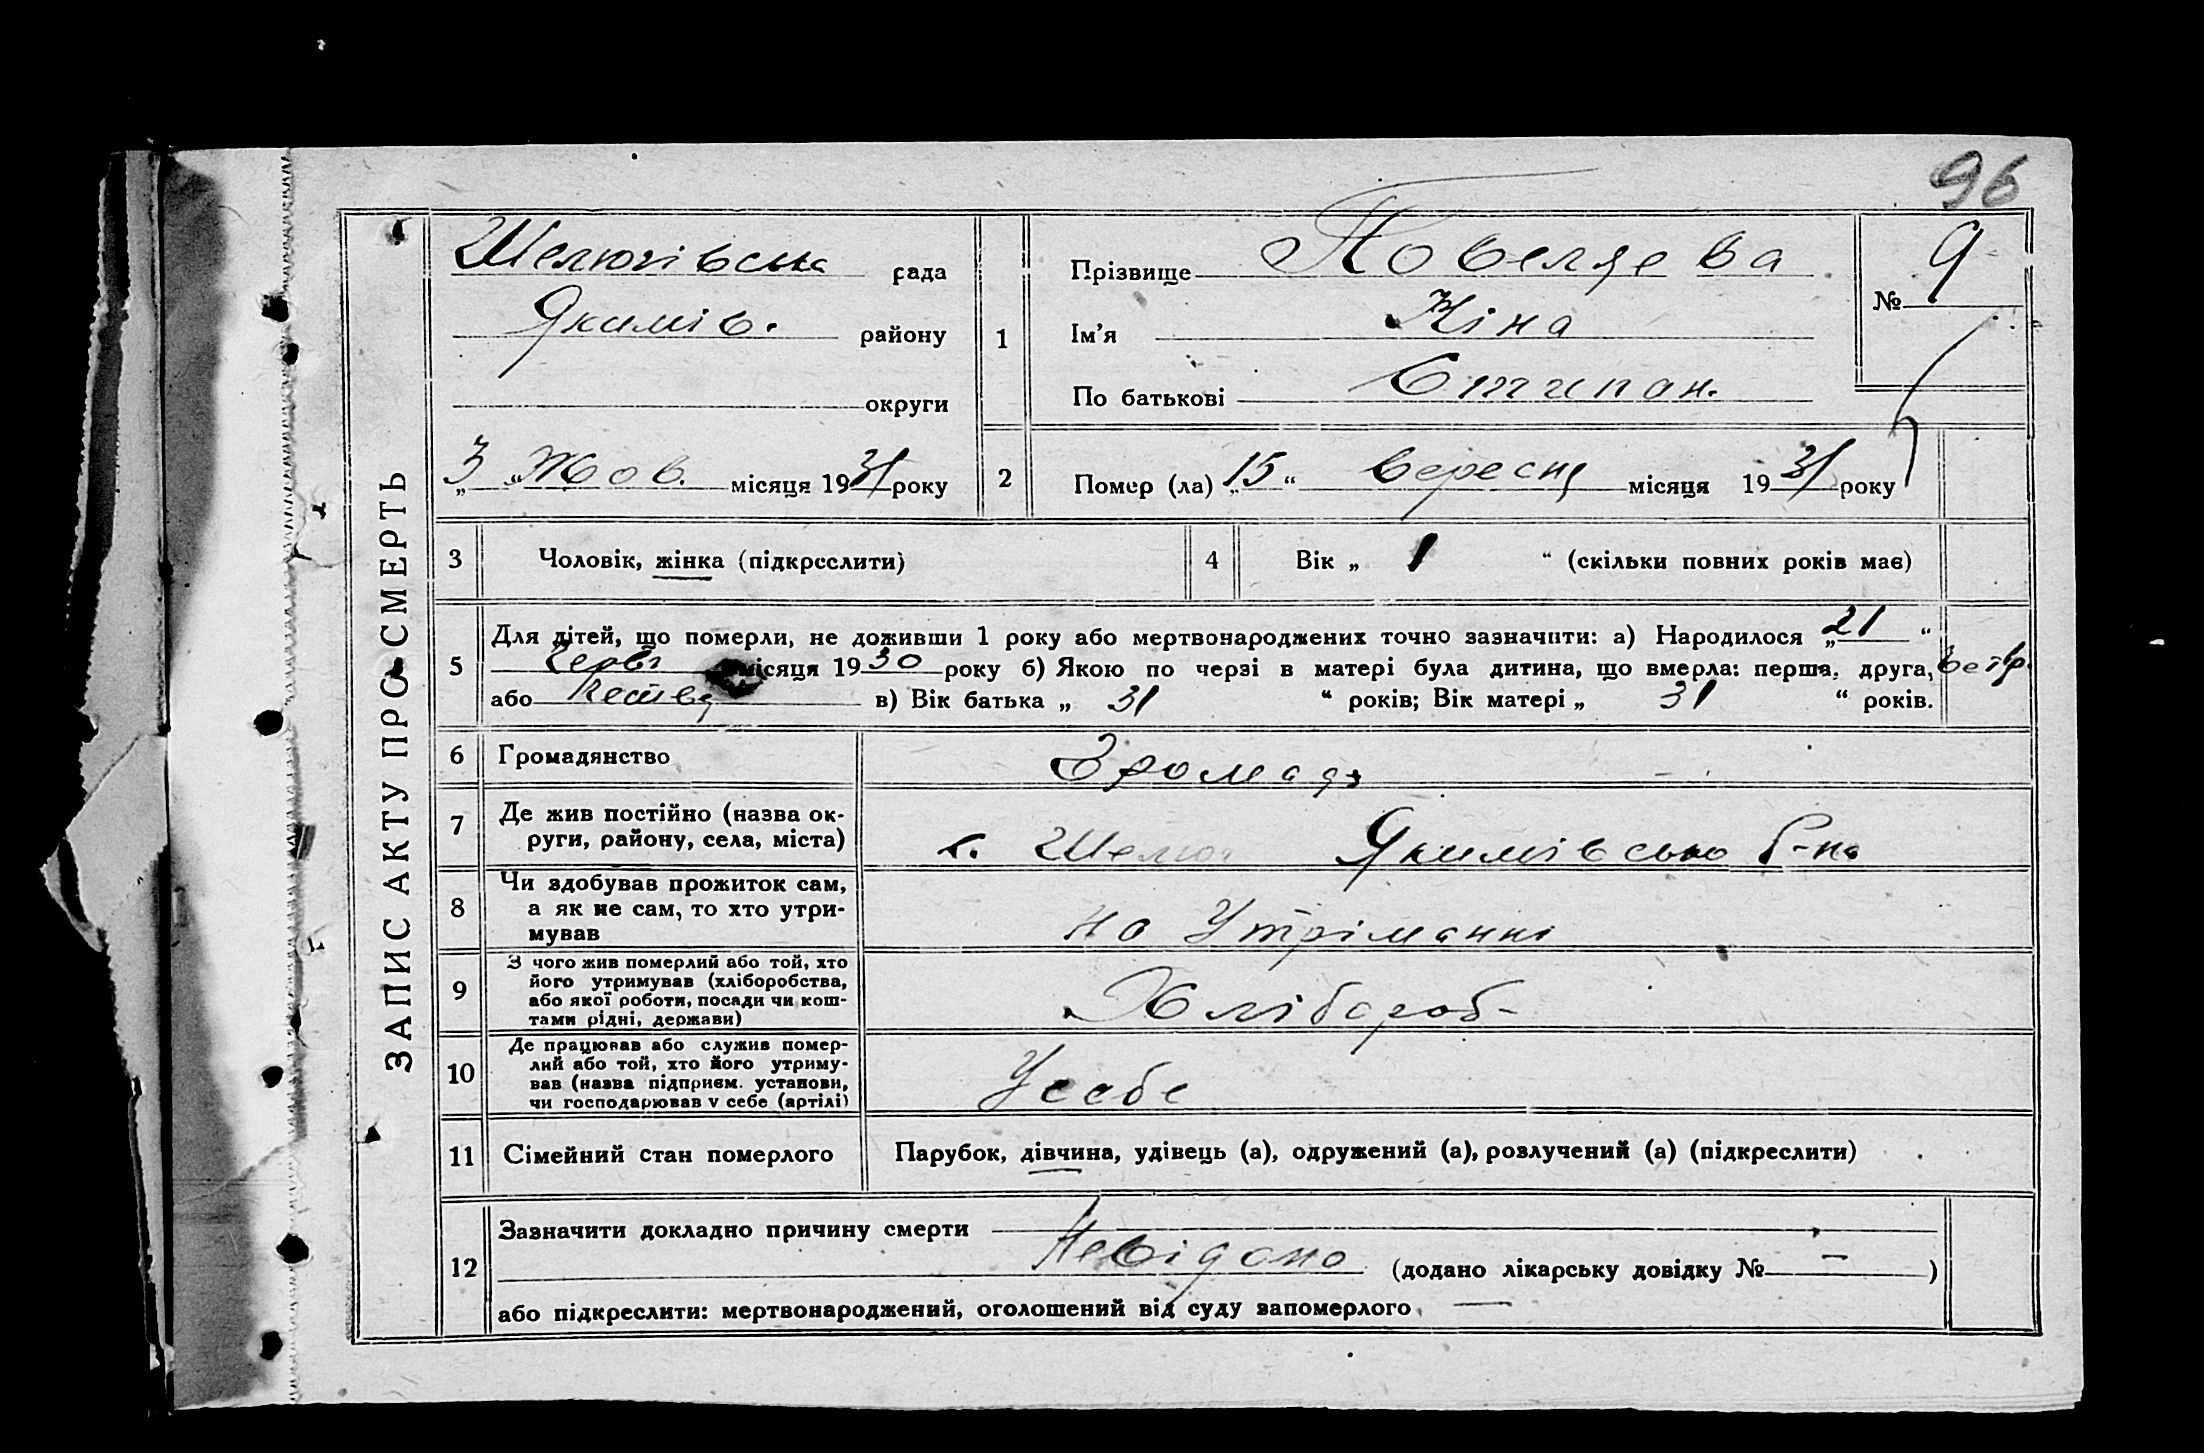 96
ЗАПИС АКТУ ПРО СМЕРТЬ
Шелюгівська рада
Якимів. району
округи
„3“ Жов. місяця 1931 року
1
Прізвище
Ім’я Ніна
По батькові Стипан.
№ 9
2 Помер (ла) „15“ вересня місяця 1931 року
3 Чоловік, жінка (підкреслити)
4 Вік „ 1 “ (скільки повних років має)
5 Для дітей, що померли, не доживши 1 року або мертвонароджених точно зазначити: а) Народилося „21“
місяця 1930 року б) Якою по черзі в матері була дитина, що вмерла: перша, друга,
або в) Вік батька „ 31 “ років; Вік матері „ 31 “ років.
6 Громадянство
7 Де жив постійно (назва ок-
руги, району, села, міста)
с. Шелюг Якимівсько р-на
8 Чи здобував прожиток сам,
а як не сам, то хто утри-
мував
на Утріманні
9 З чого жив померлий або той, хто
його утримував (хліборобства,
або якої роботи, посади чи кош-
тами рідні, держави)
Хлібороб-
10 Де працював або служив помер-
лий або той, хто його утриму-
вав (назва підприєм. установи,
чи господарював у себе (артілі)
Усебе
11 Сімейний стан померлого
Парубок, дівчина, удівець (а), одружений (а), розлучений (а) (підкреслити)
12 Зазначити докладно причину смерти
Невідомо (додано лікарську довідку № — )
або підкреслити: мертвонароджений, оголошений від суду запомерлого —